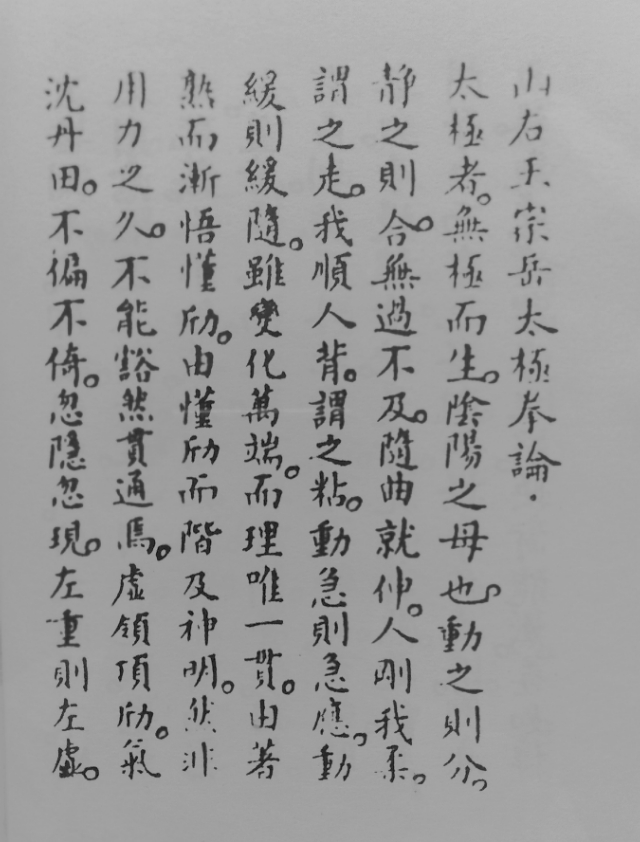 山右王宗岳太極拳論．
太極者。無極而生。陰陽之母也。動之則分。
靜之則合。無過不及。隨曲就伸。人剛我柔。
謂之走。我順人背。謂之粘。動急則急應。動
緩則緩隨。雖變化萬端。而理唯一貫。由著
熟而漸悟懂劤。由懂劤而階及神明。然非
用力之久。不能豁然貫通焉。虛領頂劤。氣
沈丹田。不偏不倚。忽隱忽現。左重則左虛。